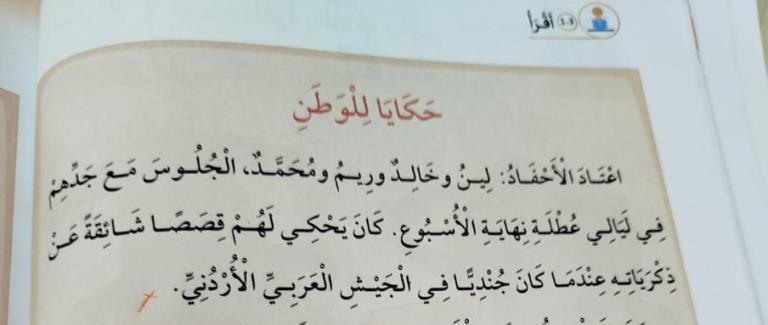 1-3 أَقْرَأُ
حَكَايَا لِلْوَطَنِ
اعْتَادَ الْأَحْفَادُ: لِينُ وخَالِدٌ ورِيمُ ومُحَمَّدٌ، الْجُلُوسَ مَعَ جَدِّهِمْ
فِي لَيَالِي عُطْلَةِ نِهَايَةِ الْأُسْبُوعِ. كَانَ يَحْكِي لَهُمْ قِصَصًا شَائِقَةً عَنْ
ذِكْرَيَاتِهِ عِنْدَمَا كَانَ جُنْدِيًّا فِي الْجَيْشِ الْعَرَبِيِّ الْأُرْدُنِيِّ.